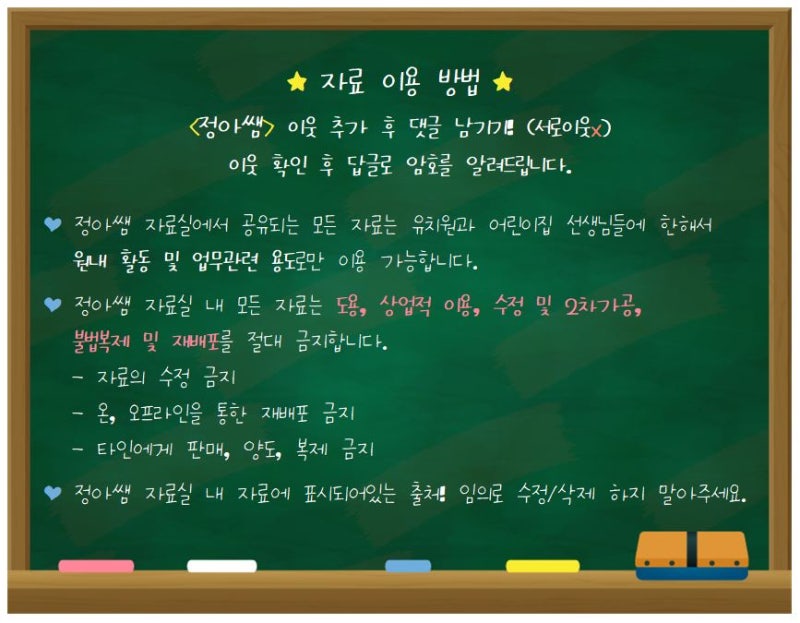 자료 이용 방법
<정아쌤> 이웃 추가 후 댓글 남기기! (서로이웃x)
이웃 확인 후 답글로 암호를 알려드립니다.
정아쌤 자료실에서 공유되는 모든 자료는 유치원과 어린이집 선생님들에 한해서
원내 활동 및 업무관련 용도로만 이용 가능합니다.
정아쌤 자료실 내 모든 자료는 도용, 상업적 이용, 수정 및 2차가공,
불법복제 및 재배포를 절대 금지합니다.
- 자료의 수정 금지
- 온, 오프라인을 통한 재배포 금지
- 타인에게 판매, 양도, 복제 금지
정아쌤 자료실 내 자료에 표시되어있는 출처! 임의로 수정/삭제 하지 말아주세요.